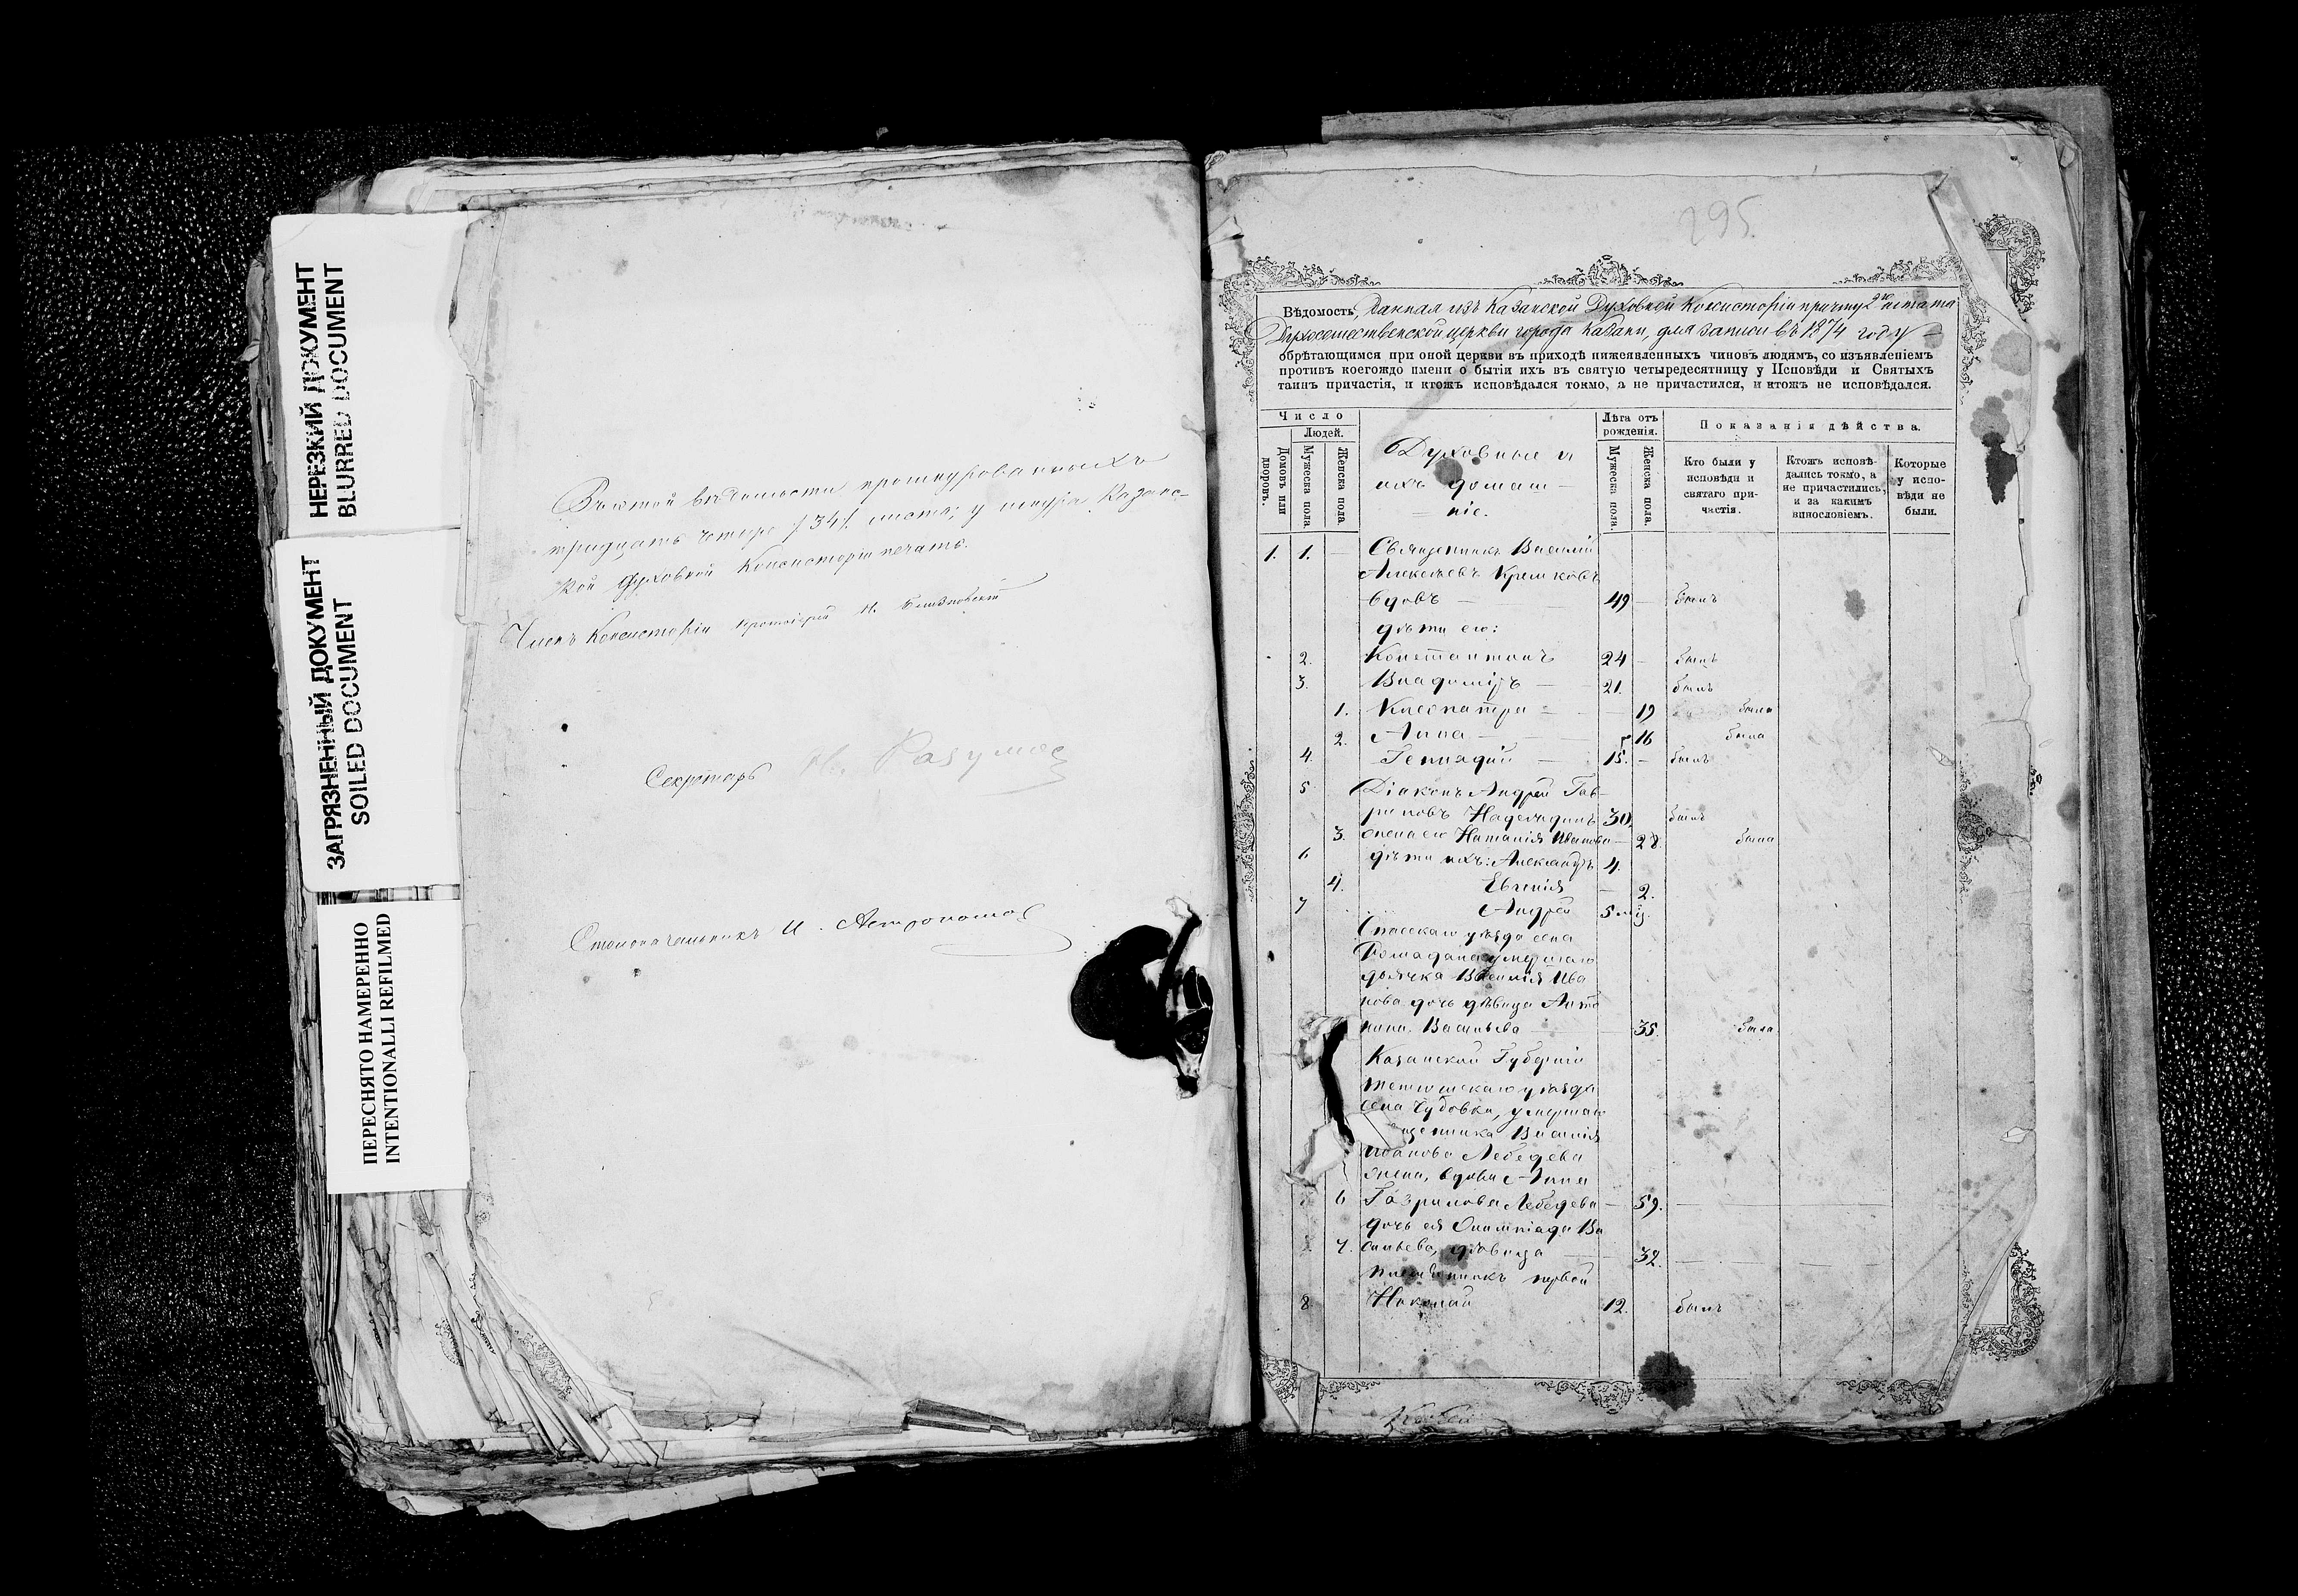 НЕРЕЗКИЙ ДОКУМЕНТ
BLURRED DOCUMENT
ЗАГРЯЗНЕННЫЙ ДОКУМЕНТ
SOILED DOCUMENT
ПЕРЕСНЯТО НАМЕРЕННО
INTENTIONALLI REFILMED
Въ этой вѣдомости прошнурованныхъ
тридцать четыре /34/. листа; у шнура Казанс-
кой Духовной Консисторіи печать.
Членъ Консисторіи протоіерей
Секретарь Н.
Столоначальникъ И. Астрономов
295.
Вѣдомость, данная изъ Казанской Духовной Консисторіи причту 2го штата
Духосошественской церкви города Казани, для записи въ 1874 году
обрѣтающимся при оной церкви въ приходѣ нижеявленныхъ чиновъ людямъ, со изъявленіемъ
противъ коегождо имени о бытіи ихъ въ святую четыредесятницу у Исповѣди и Святыхъ
таинъ причастія, и ктожъ исповѣдался токмо, а не причастился, и ктожъ не исповѣдался.
Число
Людей.
Домовъ или дворовъ.
Мужеска пола.
Женска пола
Духовные и
ихъ домаш-
ніе.
Лѣта отъ рожденія.
Мужеска пола.
Женска пола.
Показанія дѣйства.
Кто были у исповѣди и святаго причастія.
Ктожъ исповѣдались токмо, а не причастились, и за какимъ винословіемъ.
Которые у исповѣди не были.
1. 1. — Священникъ Василій
Алексѣевъ
вдовъ — 49 — былъ
дѣти его:
2. Константинъ 24 — былъ
3. Владиміръ — 21. былъ
1. Клеопатра — — 19 была
2. Анна — 16 была
4. Геннадій — 15. — былъ
5 Діаконъ Андрей Гав-
риловъ 30. былъ
3. жена его Наталія Иванова — 28 была
6 дѣти ихъ: Александръ 4.
4. Евгенія — 2.
7 Андрей 5 мѣс.
Спасскаго уѣзда села
Ромадана умершаго
дьячка Василія Ива
нова дочь дѣвица Анто
нина Васильева — 35. была
Казанской Губерніи
Тетюшскаго уѣзда
села умершаго
Василія
Иванова Лебедева
жена, вдова Анна
6 Гаврилова Лебедева — 59. —
дочь ея Олимпіада Ва
7. сильева, дѣвица — 32. —
племянникъ первой
8 Николай 12. былъ